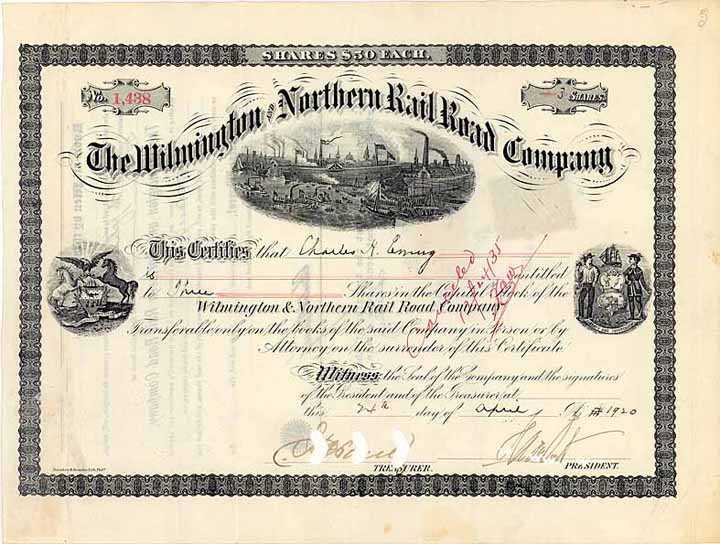 SHARES $50 EACH.
No. 1,438
3 SHARES
The Wilmington AND Northern Rail Road Company
This Certifies that Charles H. Ewing
is entitled
to Three Shares in the Capital Stock of the
Wilmington & Northern Rail Road Company
Transferable only on the books of the said Company in Person or by
Attorney on the surrender of this Certificate.
Witness the Seal of the Company and the signatures
of the President and of the Treasurer at
this 24th day of April 1920
TREASURER. PRESIDENT.
Cancelled